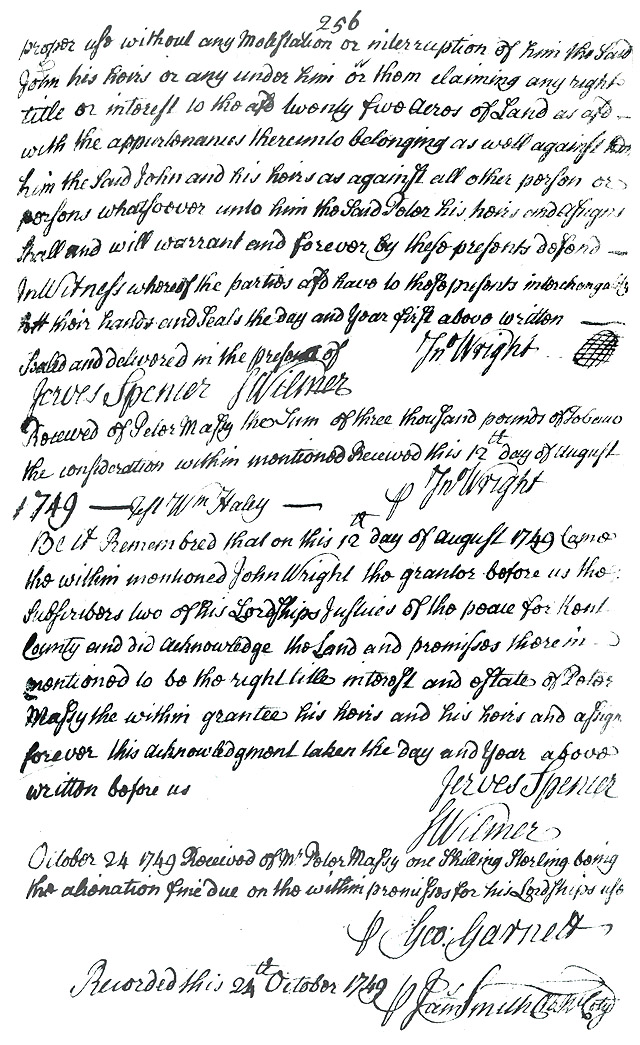 256
proper use without any Molestation or interruption of him the Said
John his heirs or any under him or them claiming any right
title or interest to the afd twenty five acres of Land as afd
with the appurtenances thereunto belonging as well against
him the Said John and his heirs as against all other person or
persons whatsoever unto him the Said Peter his heirs and assigns
Shall and will warrant and forever by these presents defend
In Witness whereof the parties afd have to these presents interchangably
sett their hands and Seals the day and Year first above written
Seald and delivered in the presence of Jno Wright
Jerves Spencer SWilmer
Received of Peter Massy the Sum of three thousand pounds of Tobacco
the consideration within mentioned Received this 12th day of August
1749 — Test Wm Haley — ⅌ Jno Wright
Be it Remembred that on this 12th day of August 1749 Came
the within mentioned John Wright the grantor before us the
Subscribers two of his Lordships Justices of the peace for Kent
County and did acknowledge the Land and premisses therein
mentioned to be the right title interest and estate of Peter
Massy the within grantee his heirs and his heirs and assigns
forever this acknowledgment taken the day and Year above
written before us Jerves Spencer
SWilmer
October 24 1749 Received of Mr Peter Massy one Shilling Sterling being
the alienation fine due on the within premisses for his Lordships use
⅌ Geo: Garnett
Recorded this 24th October 1749 ⅌ Jams Smith